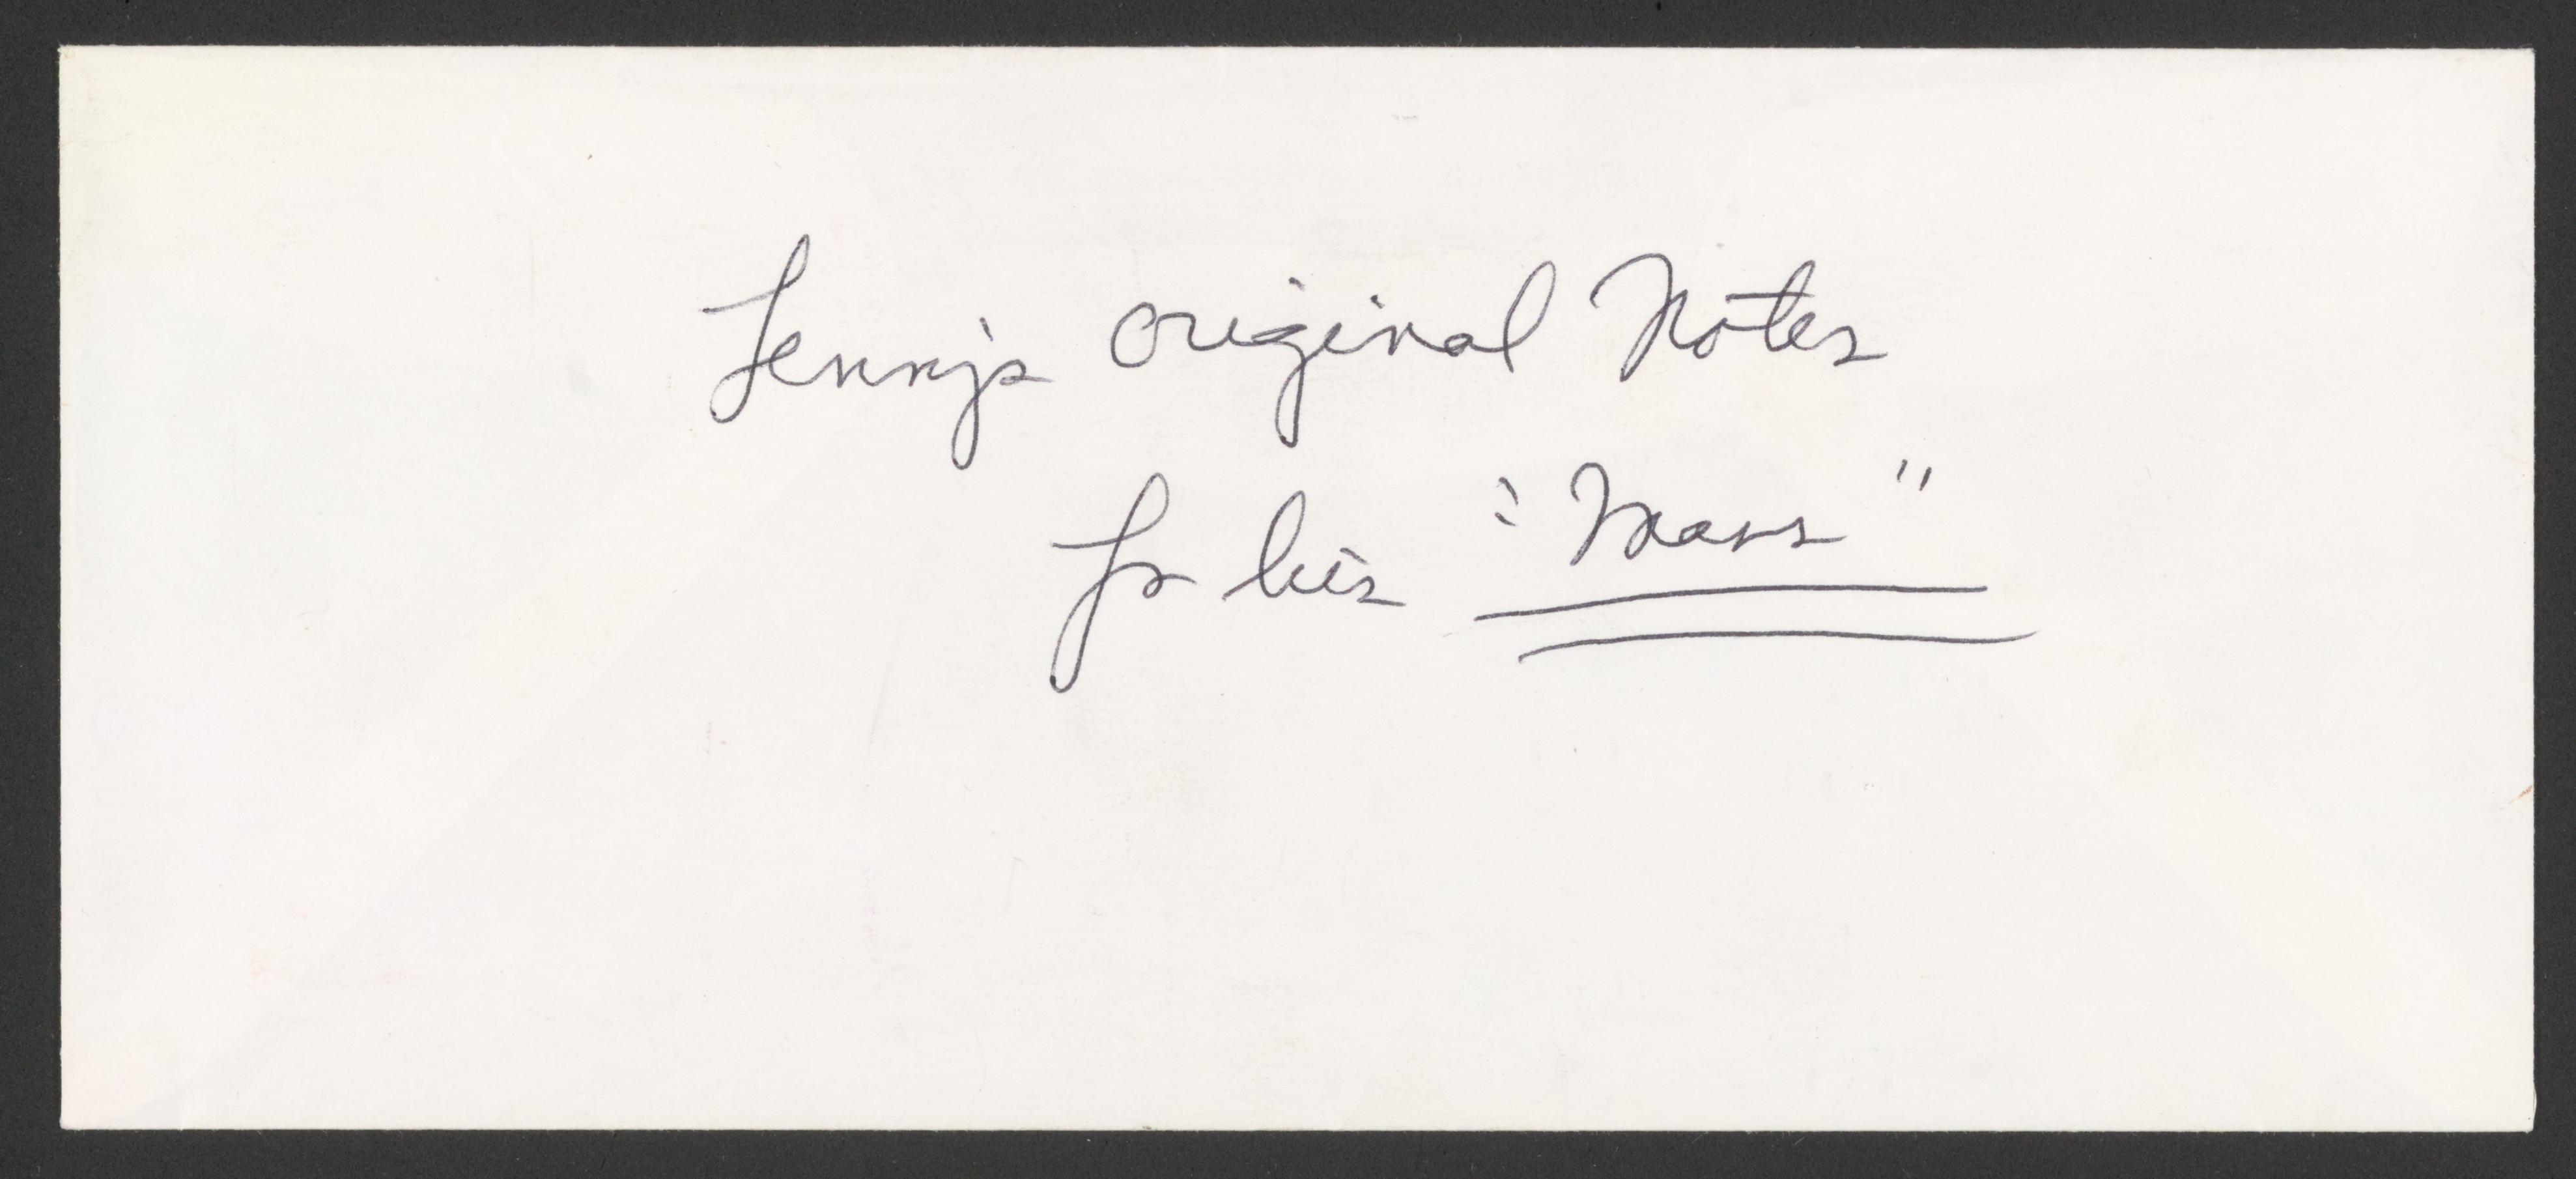 Lenny's original Notes
for his "Mass"